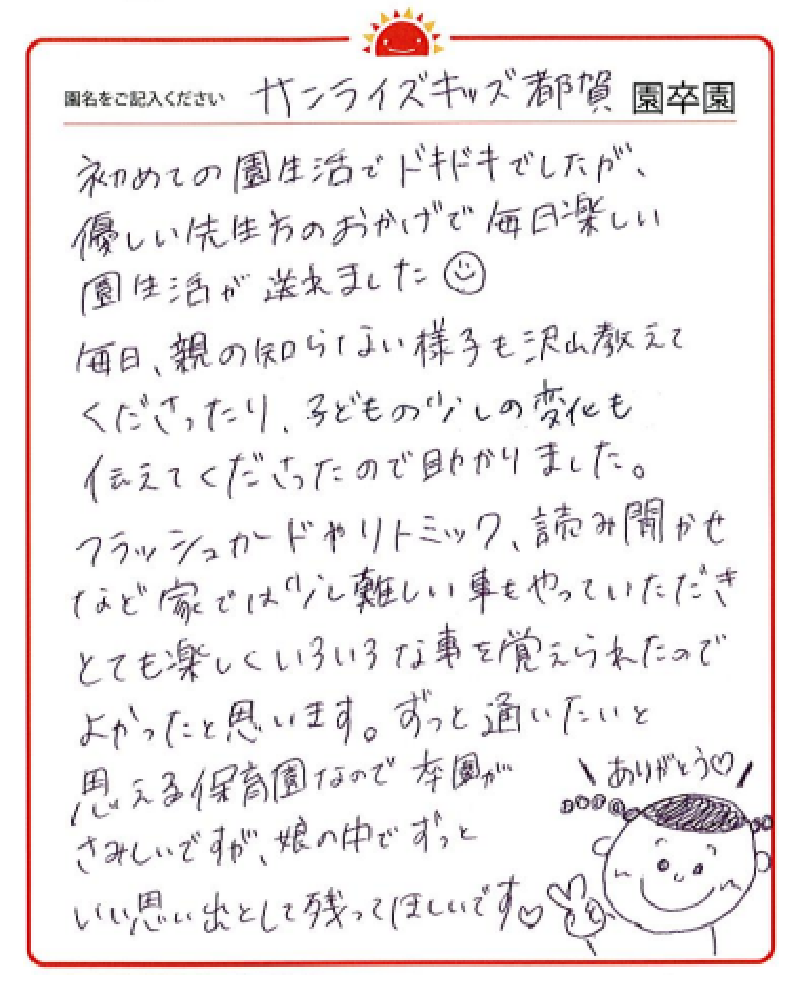 園名をご記入ください サンライズキッズ都賀 園卒園
初めての園生活でドキドキでしたが、
優しい先生方のおかげで毎日楽しい
園生活が送れました
毎日、親の知らない様子も沢山教えて
くださったり、子どもの少しの変化も
伝えてくださったので助かりました。
フラッシュカードやリトミック、読み聞かせ
など家では少し難しい事もやっていただき
とても楽しくいろいろな事を覚えられたので
よかったと思います。ずっと通いたいと
思える保育園なので卒園が
さみしいですが、娘の中でずっと
いい思い出として残ってほしいです♡
\ ありがとう♡ /